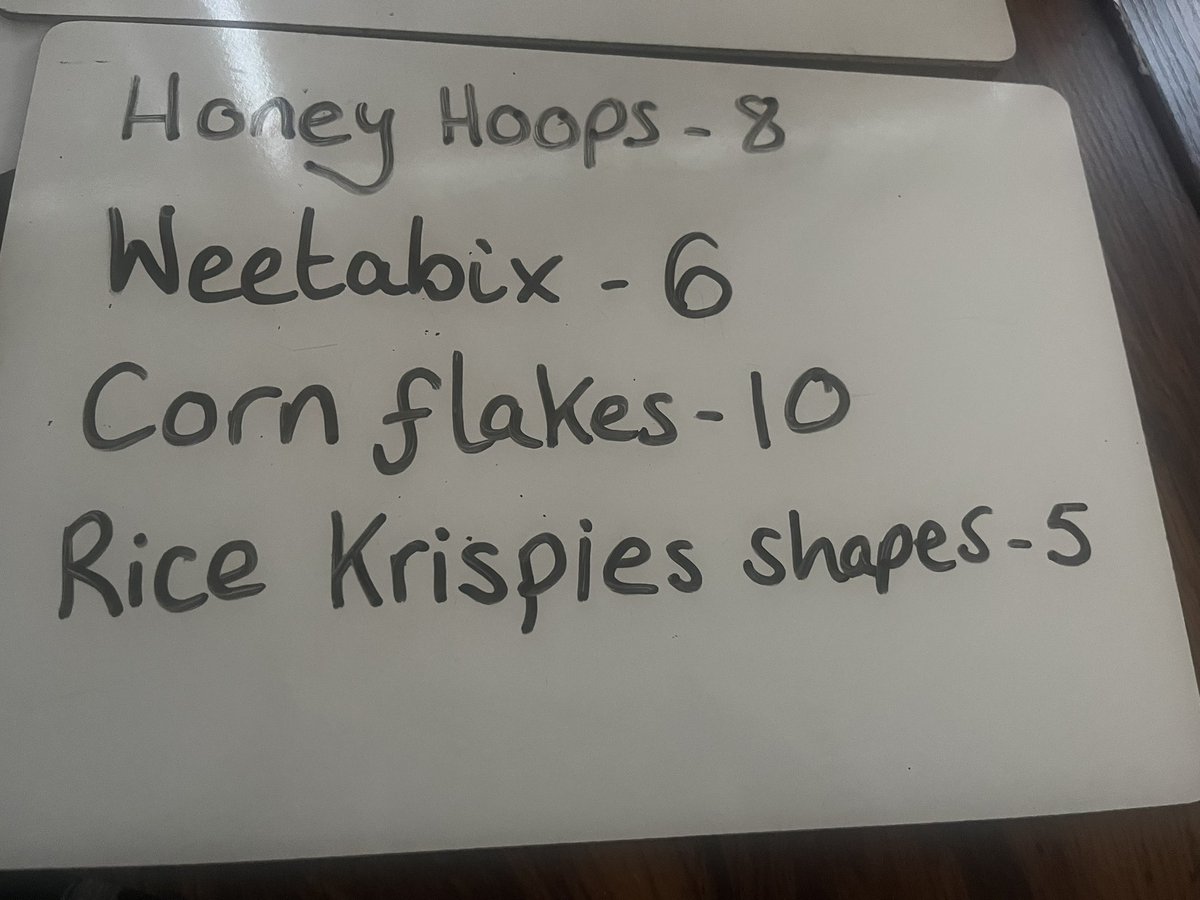 Honey Hoops - 8
Weetabix - 6
Corn flakes - 10
Rice Krispies shapes - 5